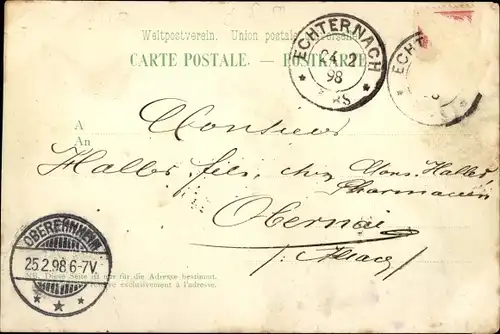 Weltpostverein. Union postale
CARTE POSTALE. — POSTKARTE
ECHTERNACH
24 2
98
ECHT
A
An
Monsieur
Halles fils, chez Mons. Halles,
Pharmacien
Obernai
OBEREHNHEIM
25.2.98.6-7V.
NB. Diese Seite ist nur für die Adresse bestimmt.
réservé exclusivement à l'adresse.